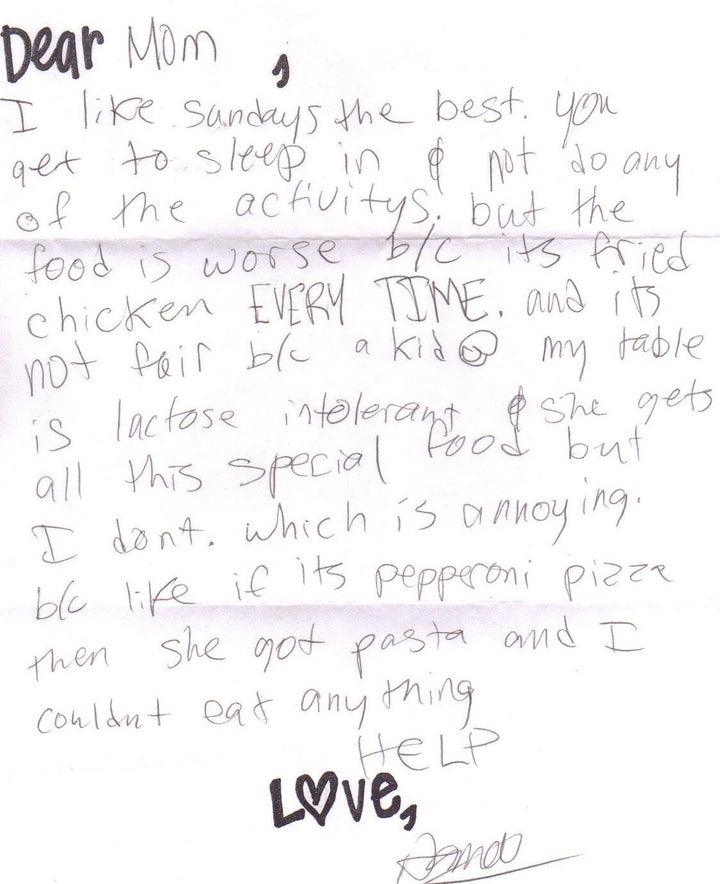 Dear Mom,
I like sundays the best. you
get to sleep in & not do any
of the activitys. but the
food is worse b/c its fried
chicken EVERY TIME. and its
not fair b/c a kid @ my table
is lactose intolerant & she gets
all this special food but
I dont. which is annoying.
b/c like if its pepperoni pizza
then she got pasta and I
couldnt eat anything
HELP
Love,